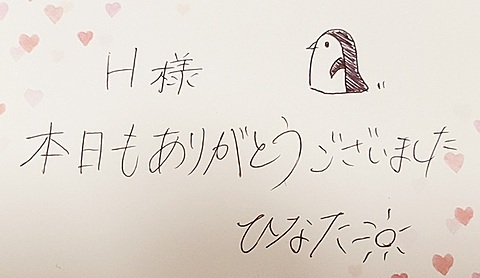 H様
本日もありがとうございました
ひなた